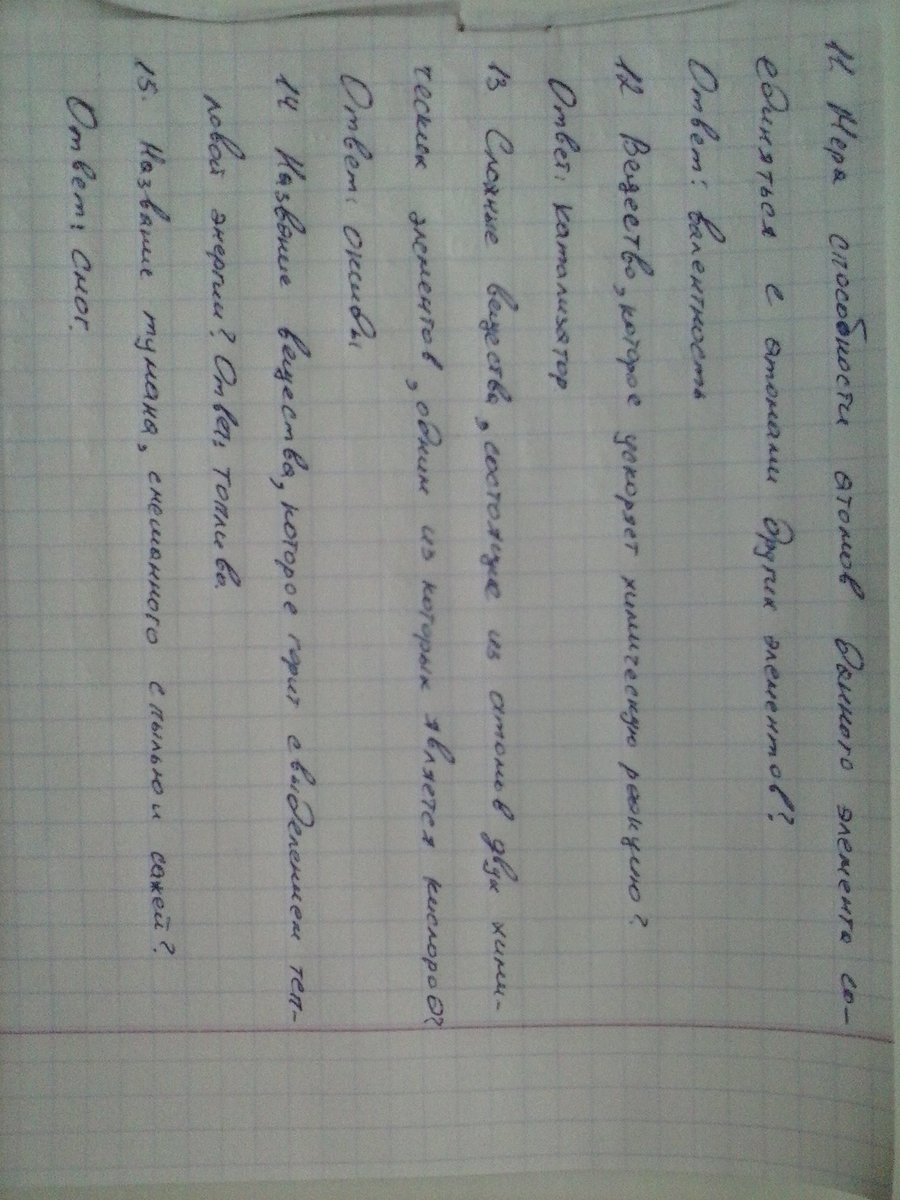 11. Мера способности атомов данного элемента со-
единяться с атомами других элементов?
Ответ: валентность
12 Вещество, которое ускоряет химическую реакцию?
Ответ: катализатор
13 Сложные вещества, состоящие из атомов двух хими-
ческих элементов, одним из которых является кислород?
Ответ: оксиды
14 Название вещества, которое горит с выделением теп-
ловой энергии? Ответ: топливо.
15. Название тумана, смешанного с пылью и сажей?
Ответ: Смог.